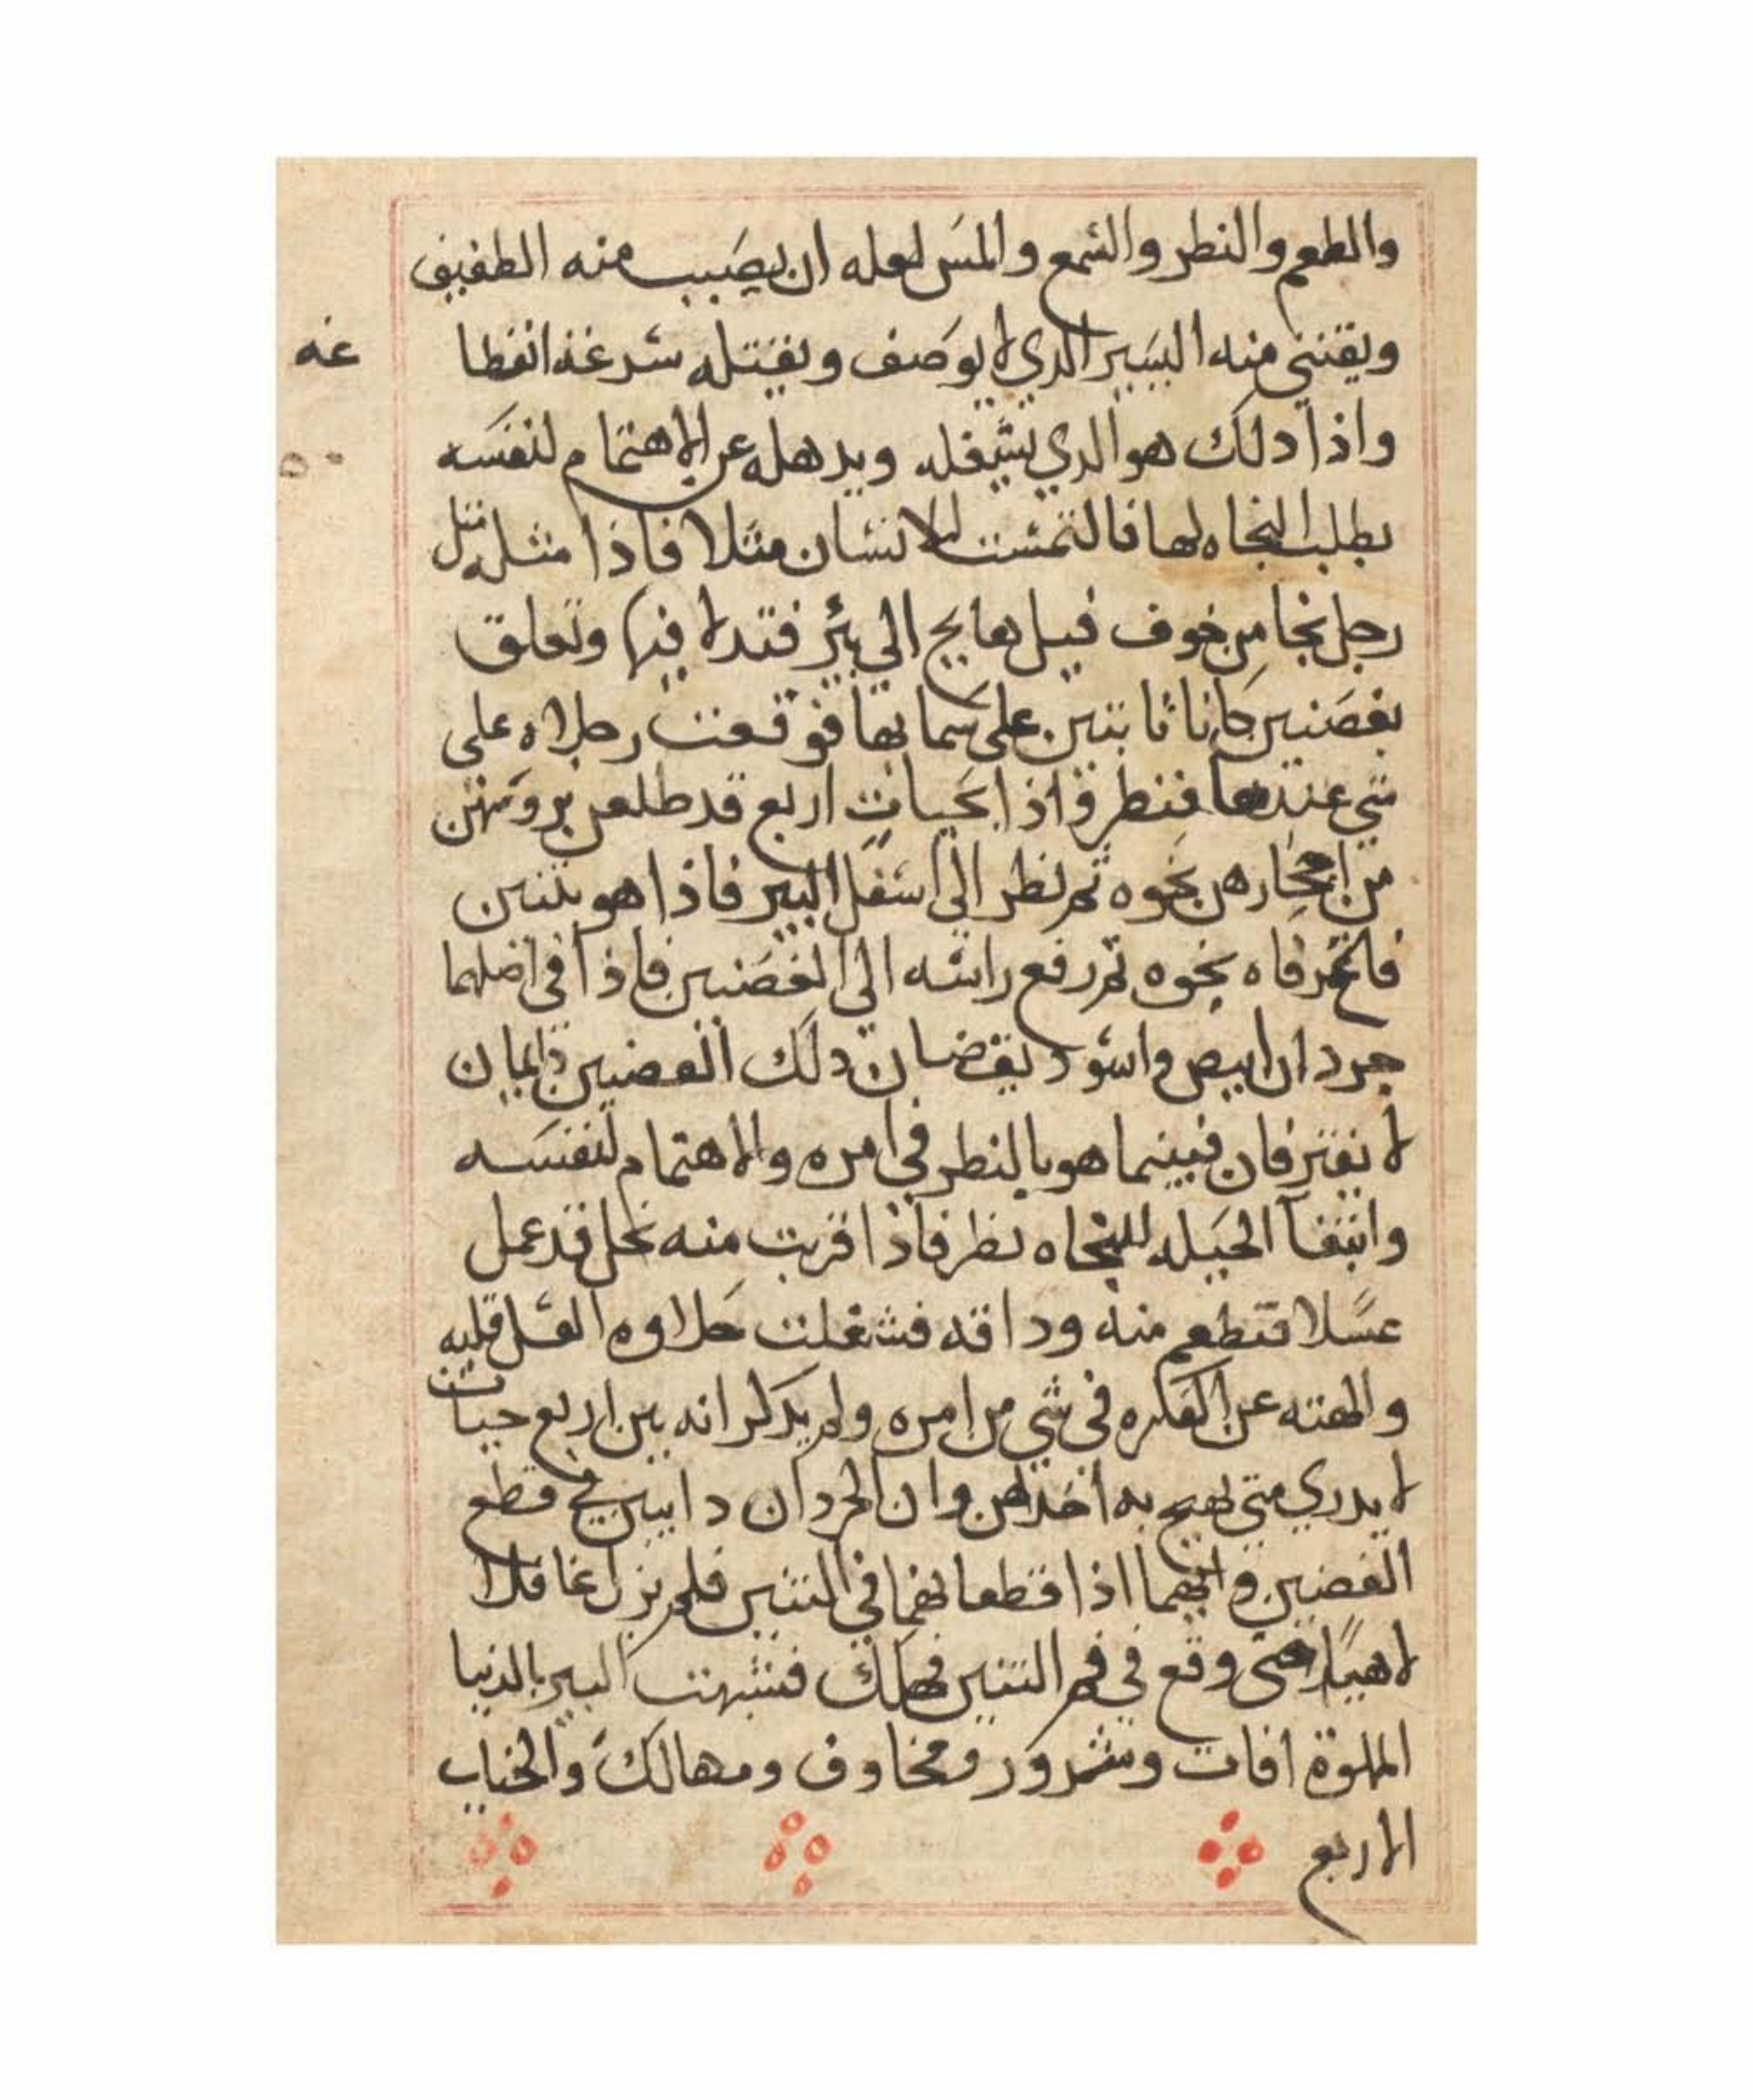 والطعم والنطر والشمع والمس لعله ان يصيب منه الطفيف
ويقتني منه اليسير الدي لا يوصف ويقتله سرعة انقطا
عه
واذا دلك هو الدي يشغله ويدهله عن الاهتمام لنفسه
بطلب النجاه لها فالتمست للانسان مثلا فاذا مثله مثل
رجل نجا من خوف فيل هايج الي بئر فتدلا فيها وتعلق
بغصنين كانا نابتين على سمايها فوقعت رجلاه على
شي عندها فنطر فاذا بحيات اربع قد طلعن بروسهن
من احجارهن نحوه ثم نظر الي اسفل البير فاذا هو بتنين
فاتحر فاه نحوه ثم رفع راسه الي الغصنين فاذا في اصلهما
جردان ابيض واسود يقضان دلك الغصنين دايمان
لا يفترقان فبينما هو بالنطر في امره والاهتمام لنفسه
وابتغآ الحيله للنجاه نظر فاذا قربت منه نحل قد عمل
عسلا فتطعم منه وداقه فشغلت حلاوه العسل قلبه
والهته عن الفكره في شي من امره ولم يدكر انه بين اربع حيات
لا يدري متى تهيج به احداهن وان الجردان دايبين في قطع
الغصنين وانهما اذا قطعا في التنين فلم يزل غافلا
لاهيًا حتى وقع في فم التنين فهلك فشبهت البير بالدنيا
المملوة افات وشرور ومخاوف ومهالك والحيات
الاربع